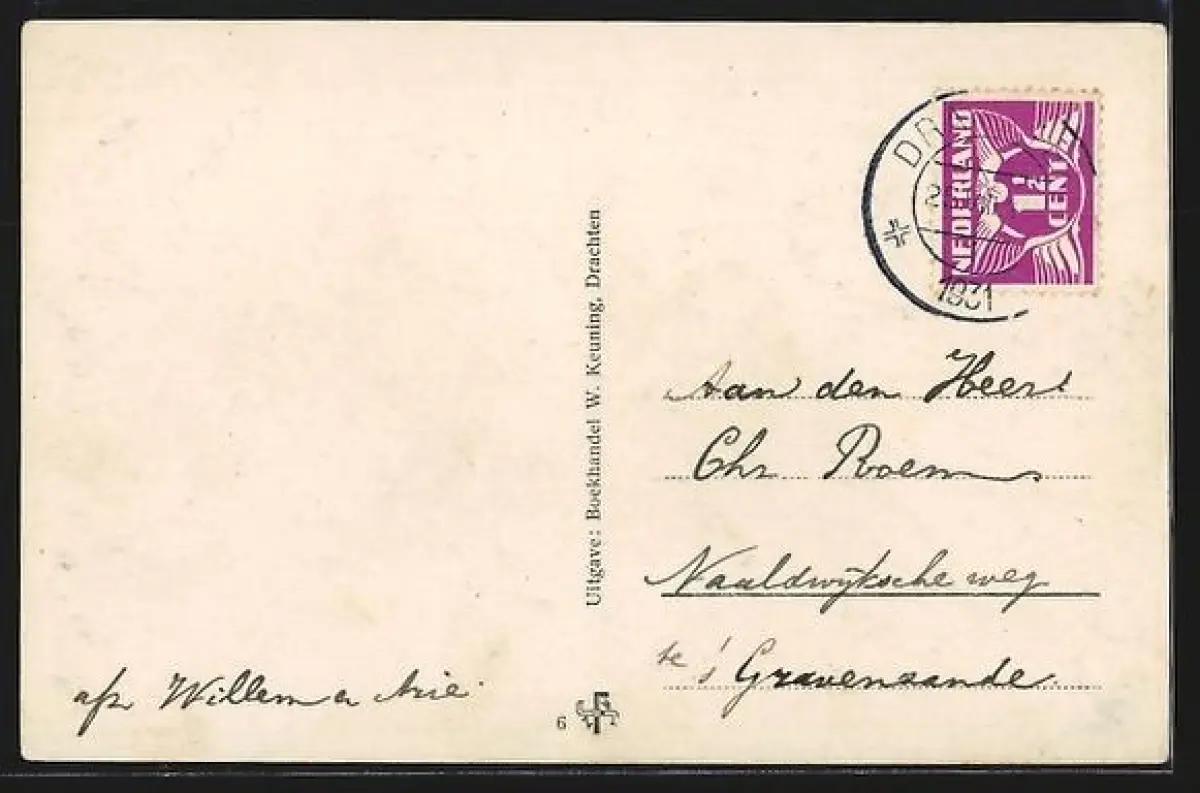 NEDERLAND
1½
CENT
1931
Uitgave: Boekhandel W. Keuning, Drachten
Aan den Heer
Chr Roem
Naaldwijksche weg
te 's Gravenzande.
afz Willem en Arie
6